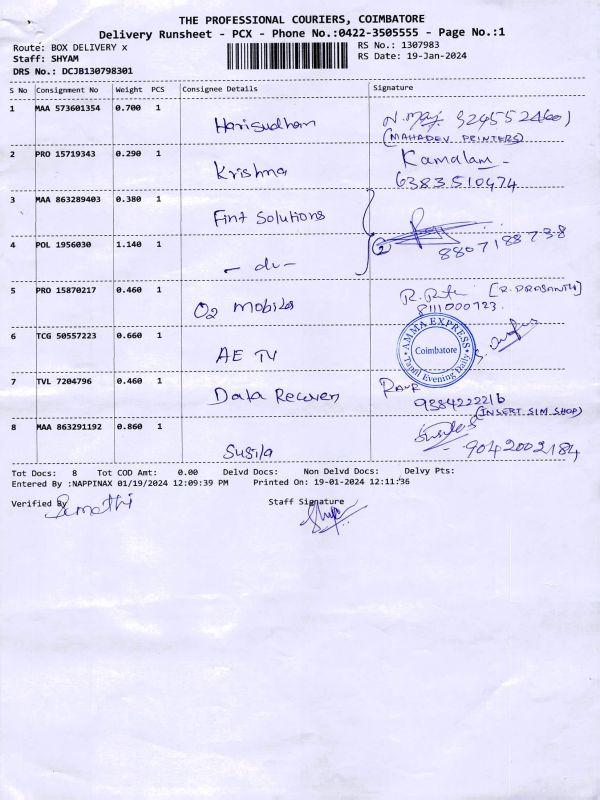 THE PROFESSIONAL COURIERS, COIMBATORE
Delivery Runsheet - PCX - Phone No.:0422-3505555 - Page No.:1
Route: BOX DELIVERY x
Staff: SHYAM
DRS No.: DCJB130798301
RS No.: 1307983
RS Date: 19-Jan-2024
S No Consignment No Weight PCS Consignee Details Signature
1 MAA 573601354 0.700 1 Harisudhan
(MAHADEV PRINTERS)
2 PRO 15719343 0.290 1 Krishna Kamalam
6383510474
3 MAA 863289403 0.380 1 Fint Solutions
4 POL 1956030 1.140 1 - do - 2 8807188738
5 PRO 15870217 0.460 1 O2 mobiles [R.PRASANTH]
8111000723.
6 TCG 50557223 0.660 1 AE TV
AMMA EXPRESS
Coimbatore
Tamil Evening Daily
7 TVL 7204796 0.460 1 Data Recovery
9384222216
(INSERT SIM SHOP)
8 MAA 863291192 0.860 1 Susila
9042002184
Tot Docs: 8 Tot COD Amt: 0.00 Delvd Docs: Non Delvd Docs: Delvy Pts:
Entered By :NAPPINAX 01/19/2024 12:09:39 PM Printed On: 19-01-2024 12:11:36
Verified By Staff Signature